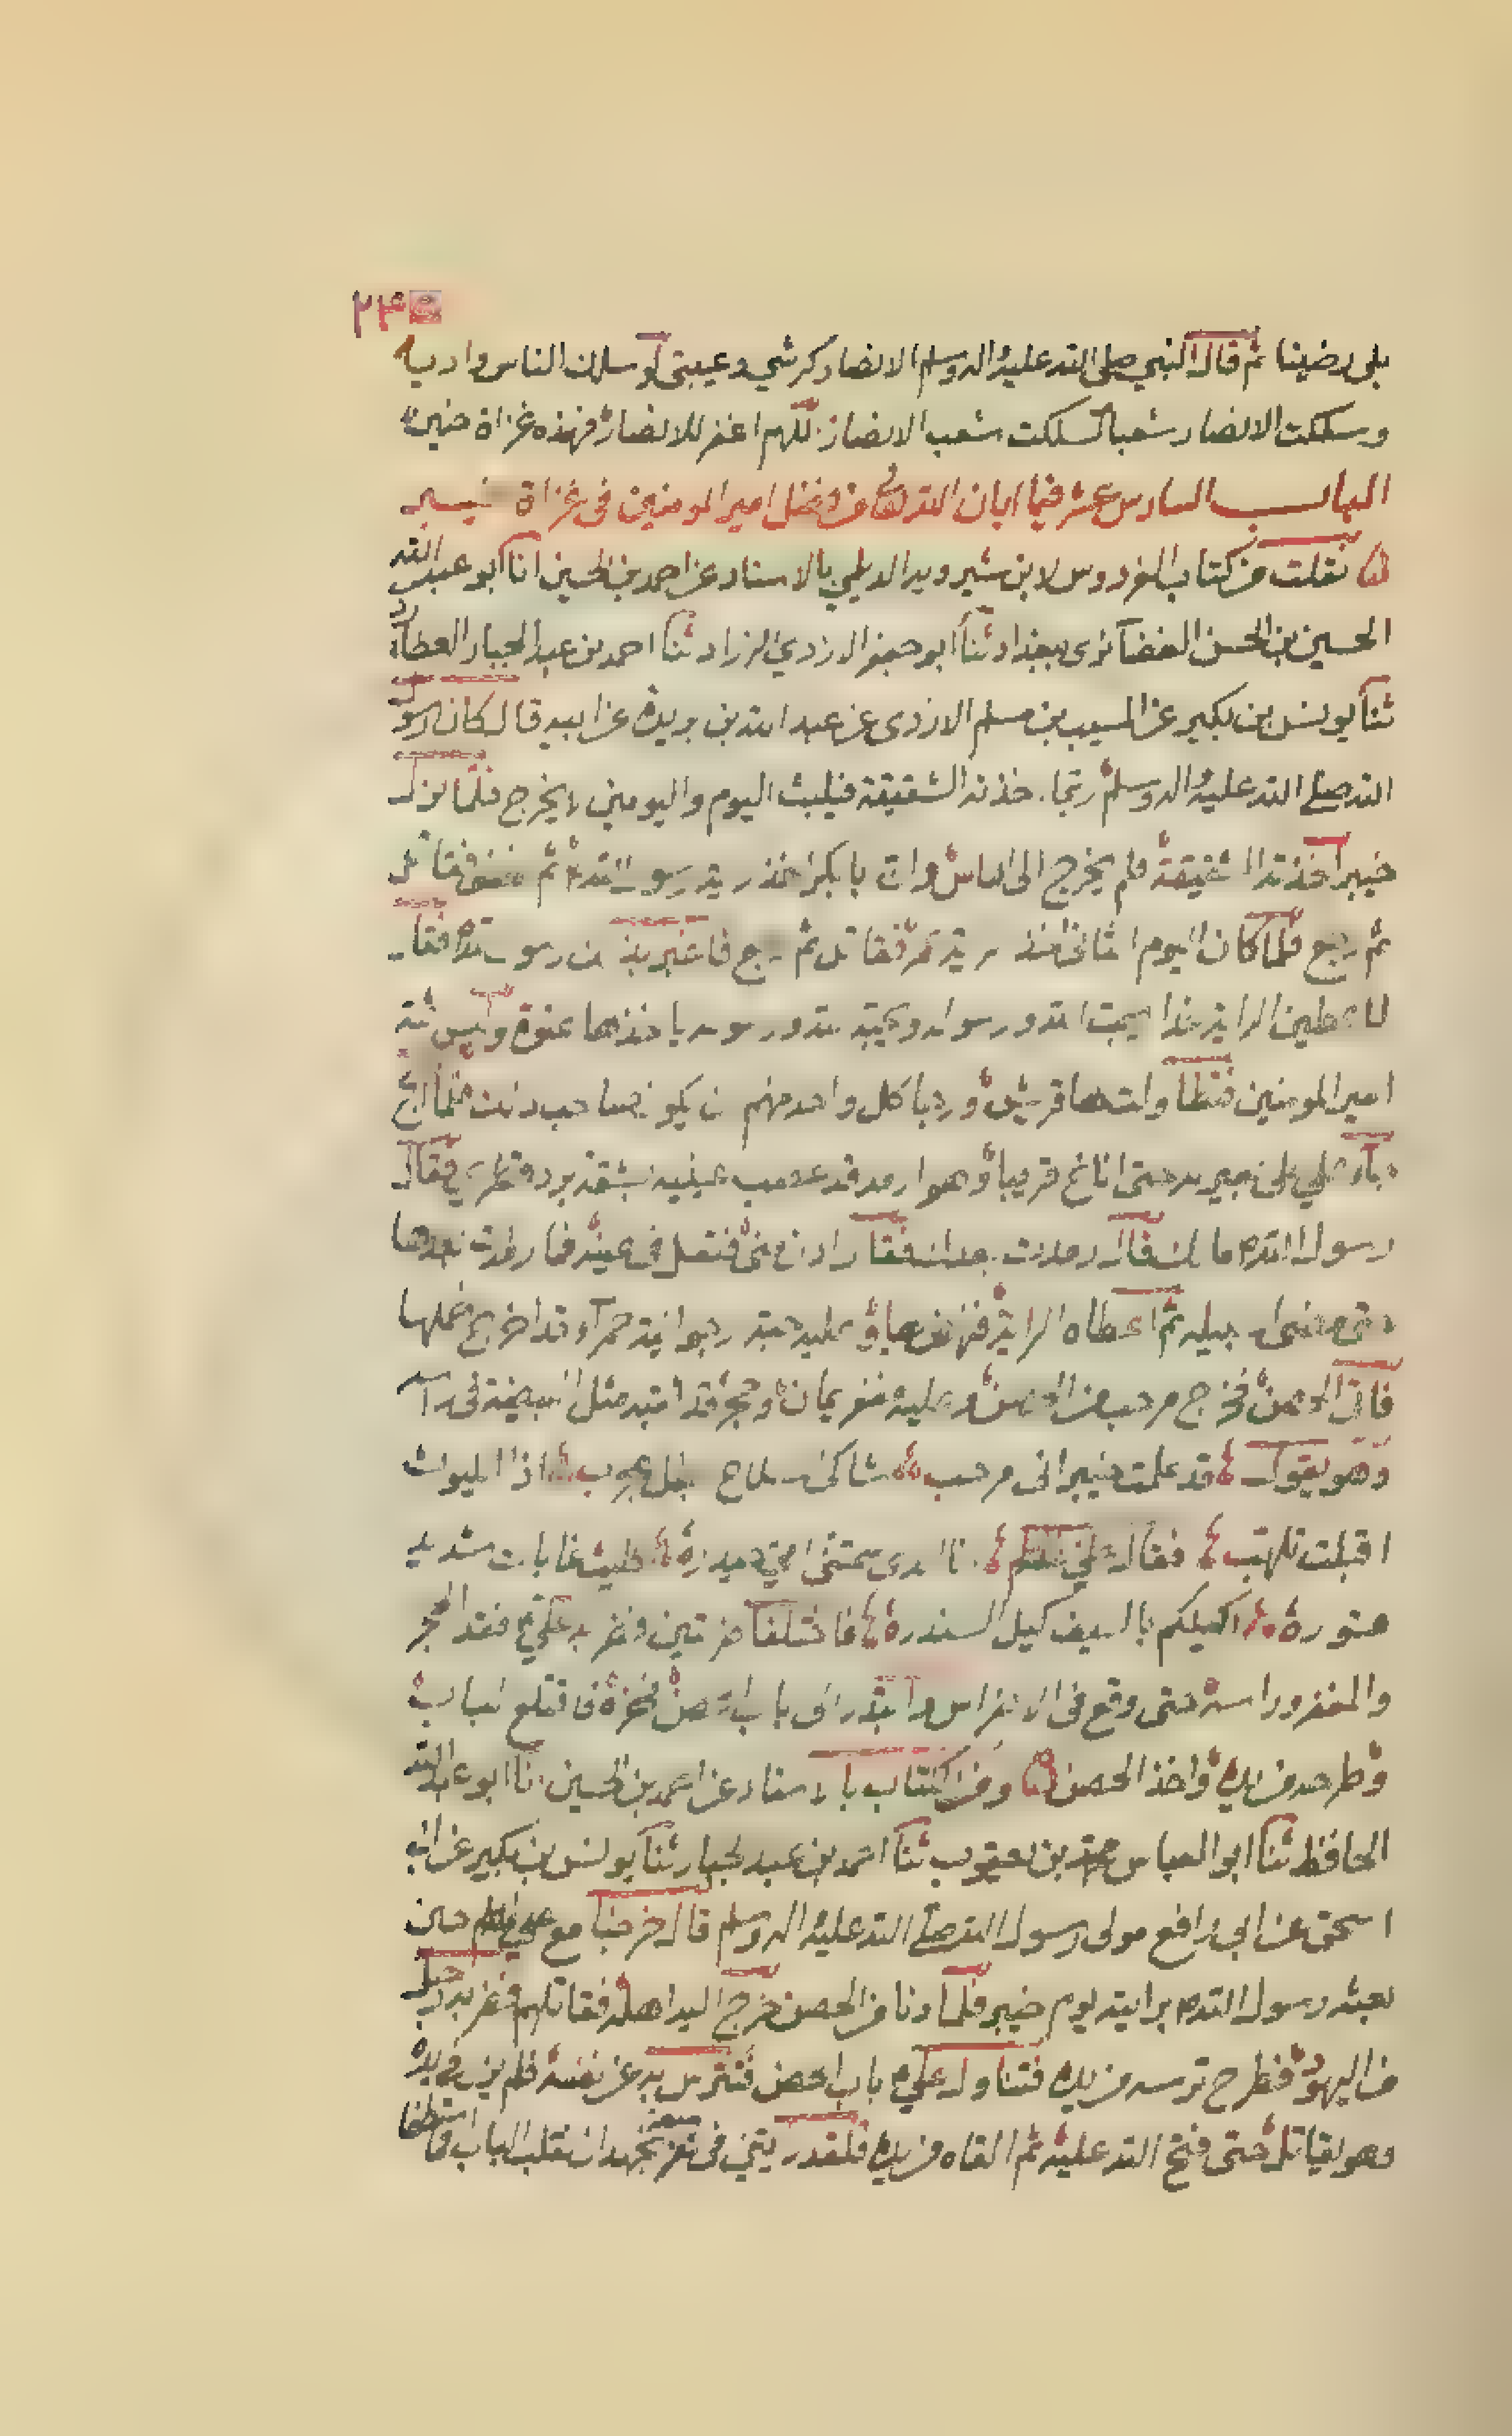 ۲۴
بلى رضينا ثم قال النبي صلى الله عليه واله وسلم الانصار كرشي وعيبتي لو سلك الناس واديا
وسلكت الانصار شعبا لسلكت شعب الانصار اللهم اغفر للانصار فهذه غزاة حنين
الباب السادس عشر فيما ابان الله من فضل امير المومنين في غزاة خيبر
نقلت من كتاب الفردوس لابن شيرويه الديلمي بالاسناد عن احمد بن الحسين انا ابو عبد الله
الحسين بن الحسن الغضائري ببغداد ثنا ابو جعفر الازدي الرزاد ثنا احمد بن عبد الجبار العطاردي
ثنا يونس بن بكير عن المسيب بن مسلم الازدى عن عبد الله بن بريدة عن ابيه قال كان رسول
الله صلى الله عليه واله وسلم ربما اخذته الشقيقة فيلبث اليوم واليومين لا يخرج فلما نزل
خيبر اخذته الشقيقة فلم يخرج الى الناس وان ابا بكر اخذ راية رسول الله ثم نهض فقاتل
ثم رجع فلما كان اليوم الثاني اخذ الراية عمر فقاتل ثم رجع فاخبر بذلك رسول الله فقال
لاعطين الراية غدا يحب الله ورسوله ويحبه الله ورسوله ياخذها عنوة وليس ثمة
امير المومنين فتطاولت لها قريش ورجا كل واحد منهم ان يكون صاحب ذلك فلما اصبح
جاء علي على بعير له حتى اناخ قريبا وهو ارمد قد عصب عينيه بشقة برد قطري فقال
رسول الله ما لك قال رمدت بعدك فقال ادن مني فتفل في عينه فما رمدت بعدها
حتى مضى لسبيله ثم اعطاه الراية فنهض بها وعليه جبة ارجوانية حمراء قد اخرج خملها
فاتى الحصن فخرج مرحب من الحصن وعليه مغفر يمان وحجر قد ثقبه مثل البيضة في راسه
وهو يقول قد علمت خيبر انى مرحب شاكى السلاح بطل مجرب اذا الليوث
اقبلت تلهب فقال علي انا الذى سمتني امي حيدره كليث غابات شديد
قسوره اكيلكم بالسيف كيل السندره فاختلفا ضربتين وضربه علي فقد الحجر
والمغفر وراسه حتى وقع في الاضراس وابتدر الى باب الحصن فاقتلع الباب
وطرحه من يده واخذ الحصن ومن الكتاب بالاسناد عن احمد بن الحسين انا ابو عبد الله
الحافظ ثنا ابو العباس محمد بن يعقوب ثنا احمد بن عبد الجبار ثنا يونس بن بكير عن ابن
اسحق عن ابي رافع مولى رسول الله صلى الله عليه واله وسلم قال خرجنا مع علي حين
بعثه رسول الله برايته يوم خيبر فلما دنا من الحصن خرج اليه اهله فقاتلهم فضربه رجل
من اليهود فطرح ترسه من يده فتناول علي باب الحصن فتترس به عن نفسه فلم يزل في يده
وهو يقاتل حتى فتح الله عليه ثم القاه من يده فلقد رايتني في نفر سبعة نجهد ان نقلب الباب فما استطعنا